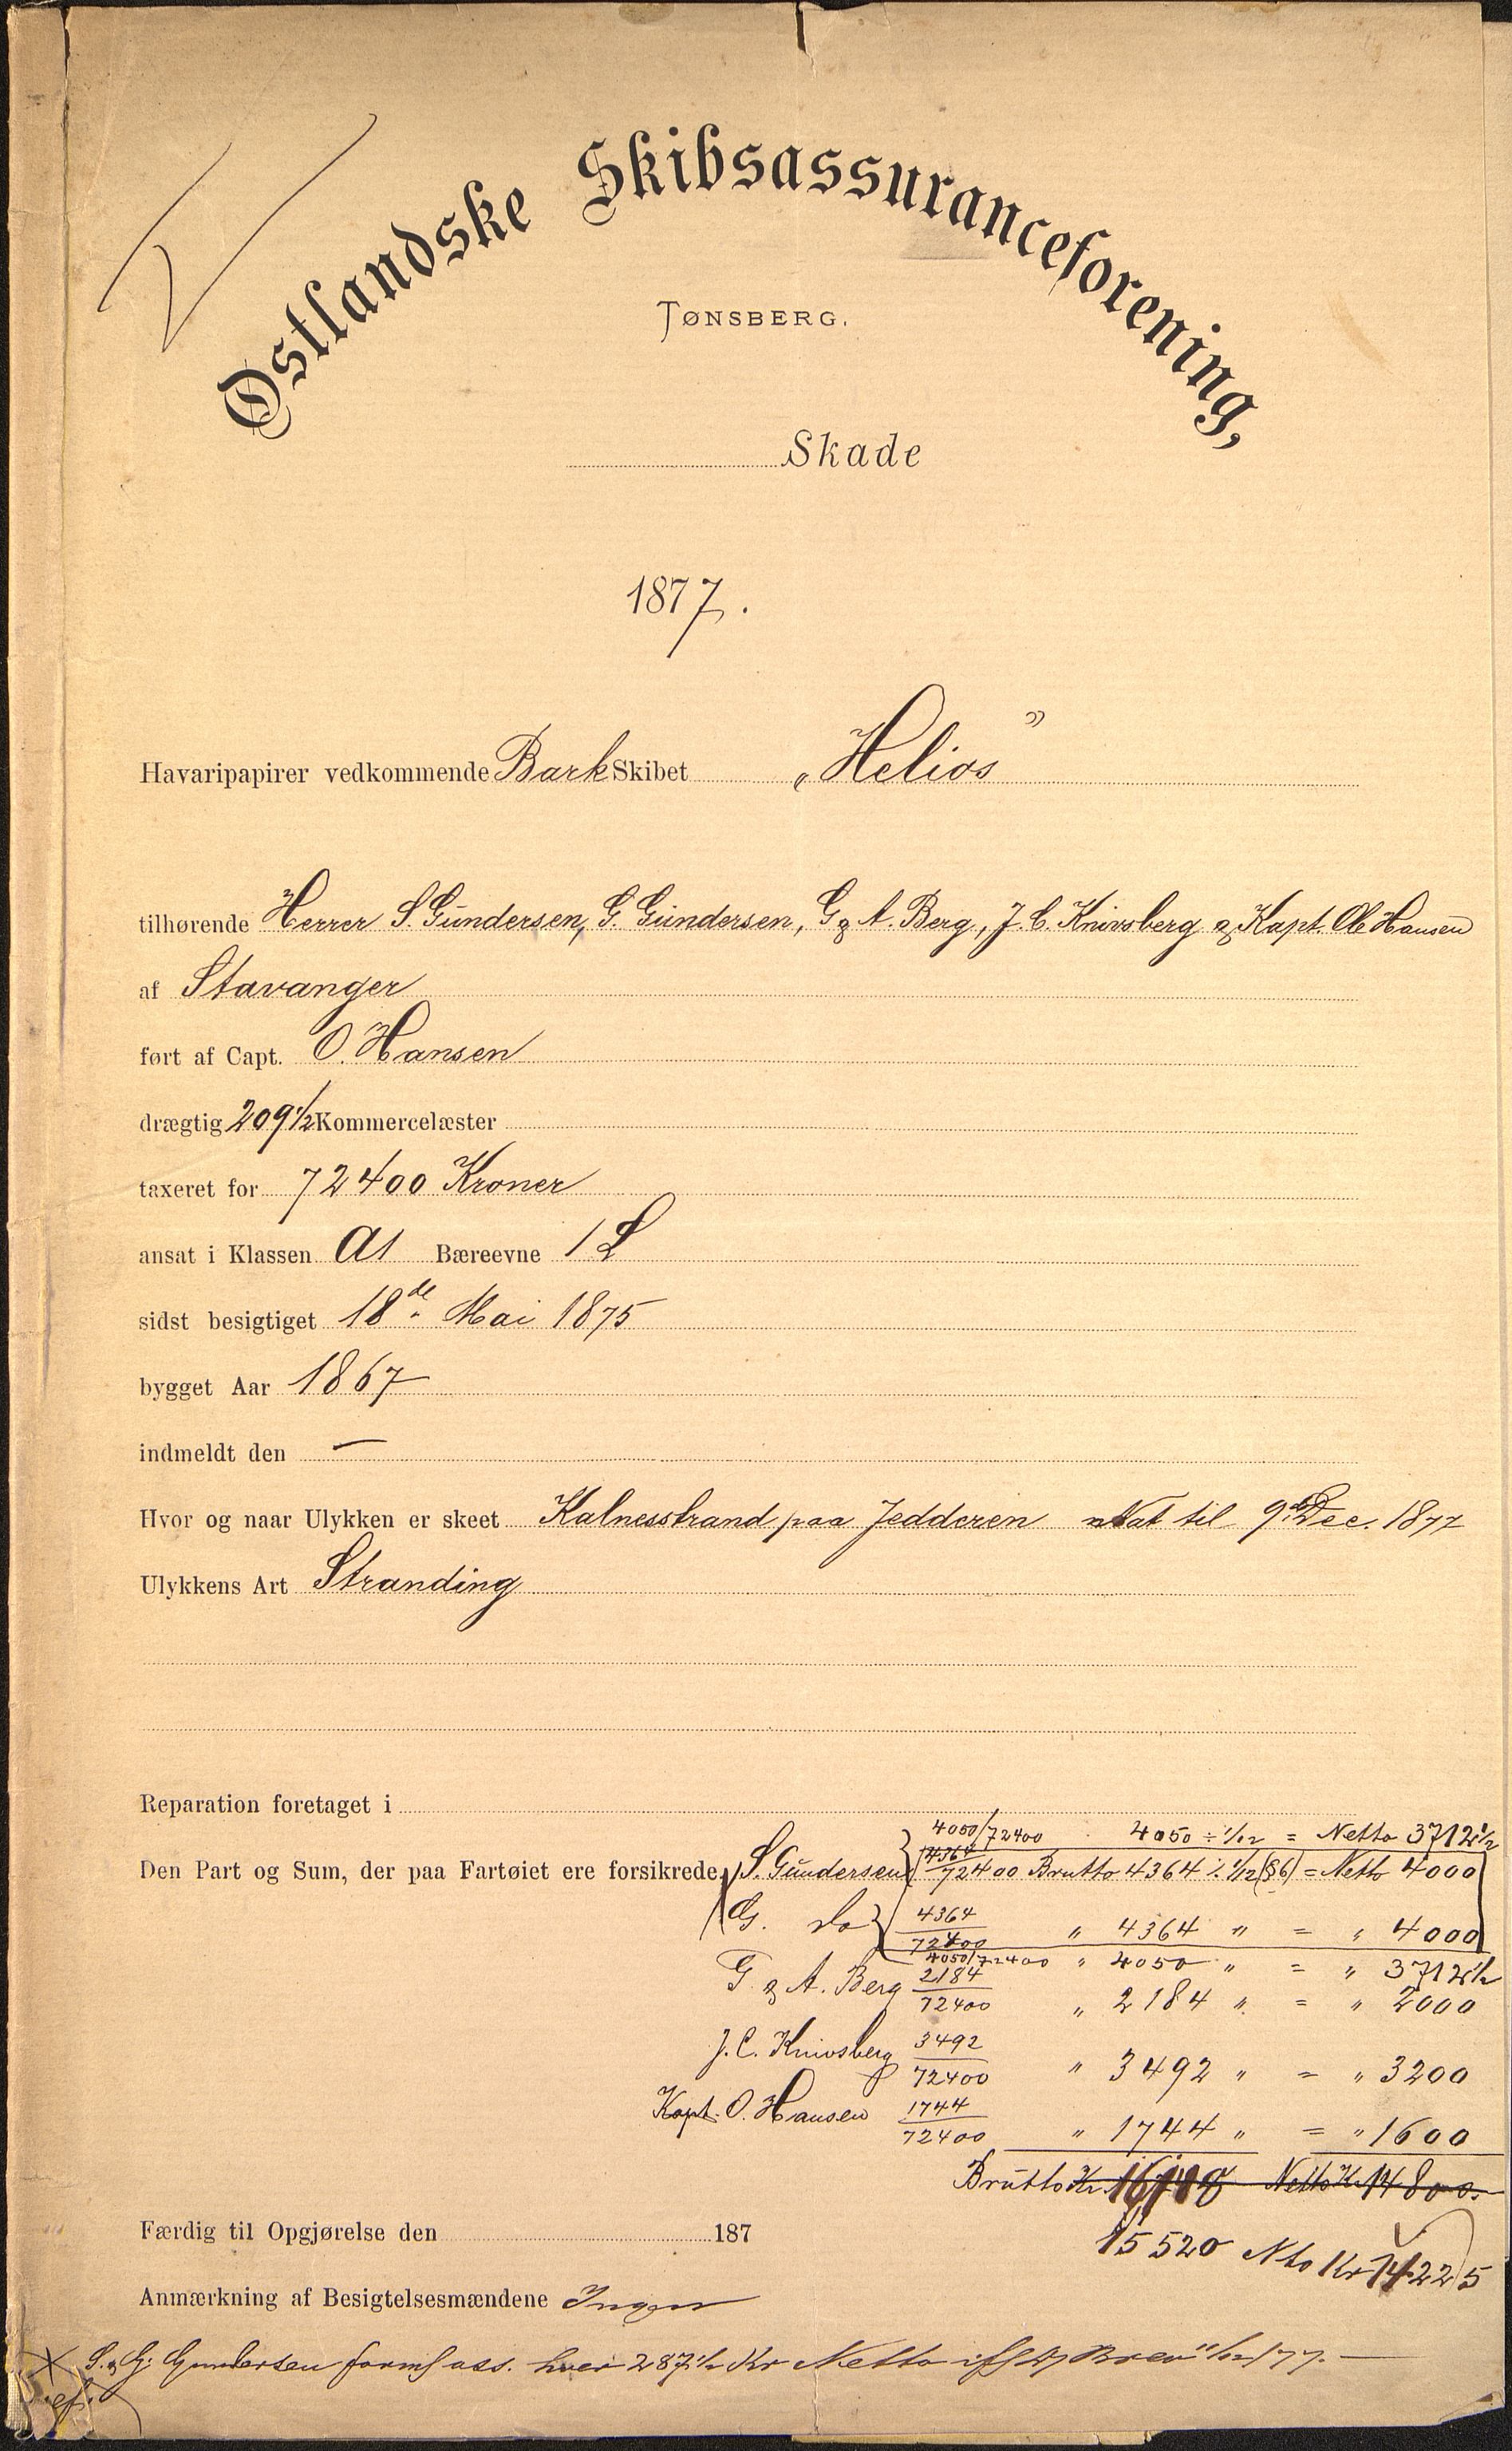 Østlandske Skibsassuranceforening,
TØNSBERG.
Skade
1877.
Havaripapirer vedkommende Bark Skibet „Helios”
tilhørende Herrer S. Gundersen, G. Gundersen, G & A. Berg, J. C. Knivsberg & Kapt. Ole Hansen
af Stavanger
ført af Capt. O. Hansen
drægtig 209 1/2 Kommercelæster
taxeret for 72400 Kroner
ansat i Klassen A1 Bæreevne 1 L
sidst besigtiget 18de Mai 1875
bygget Aar 1867
indmeldt den —
Hvor og naar Ulykken er skeet Kalnesstrand paa Jedderen Nat til 9de Dec. 1877
Ulykkens Art Stranding
Reparation foretaget i
4050/72400 4050 ÷ 1/12 = Netto 3712 1/2
Den Part og Sum, der paa Fartøiet ere forsikrede, S. Gundersen 4364/72400 Brutto 4364 ÷ 1/12 (§6) = Netto 4000
G. do 4364/72400 " 4364 " = " 4000
4050/72400 " 4050 " = " 3712 1/2
G. & A. Berg 2184/72400 " 2184 " = " 2000
J. C. Knivsberg 3492/72400 " 3492 " = " 3200
Kapt. O. Hansen 1744/72400 " 1744 " = " 1600
Brutto Kr. 16148 Netto Kr 14800.
15520 Nto Kr 14225
Færdig til Opgjørelse den 187
Anmærkning af Besigtelsesmændene Ingen
X S. & G. Gundersen ass. hver 287 1/2 Kr Netto Brev 11/12/77. —